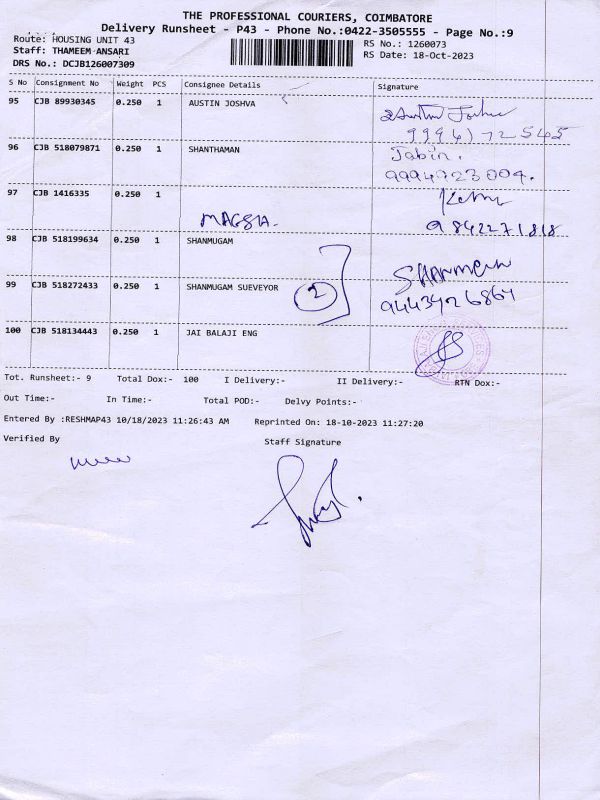 THE PROFESSIONAL COURIERS, COIMBATORE
Delivery Runsheet - P43 - Phone No.:0422-3505555 - Page No.:9
Route: HOUSING UNIT 43
RS No.: 1260073
Staff: THAMEEM ANSARI
RS Date: 18-Oct-2023
DRS No.: DCJB126007309
S No Consignment No Weight PCS Consignee Details Signature
95 CJB 89930345 0.250 1 AUSTIN JOSHVA
96 CJB 518079871 0.250 1 SHANTHAMAN Jabin.
9994723004.
97 CJB 1416335 0.250 1
MAGSIA. 9842271818
98 CJB 518199634 0.250 1 SHANMUGAM
99 CJB 518272433 0.250 1 SHANMUGAM SUEVEYOR 2 9443926864
100 CJB 518134443 0.250 1 JAI BALAJI ENG
Tot. Runsheet:- 9 Total Dox:- 100 I Delivery:- II Delivery:- RTN Dox:-
Out Time:- In Time:- Total POD:- Delvy Points:-
Entered By :RESHMAP43 10/18/2023 11:26:43 AM Reprinted On: 18-10-2023 11:27:20
Verified By Staff Signature